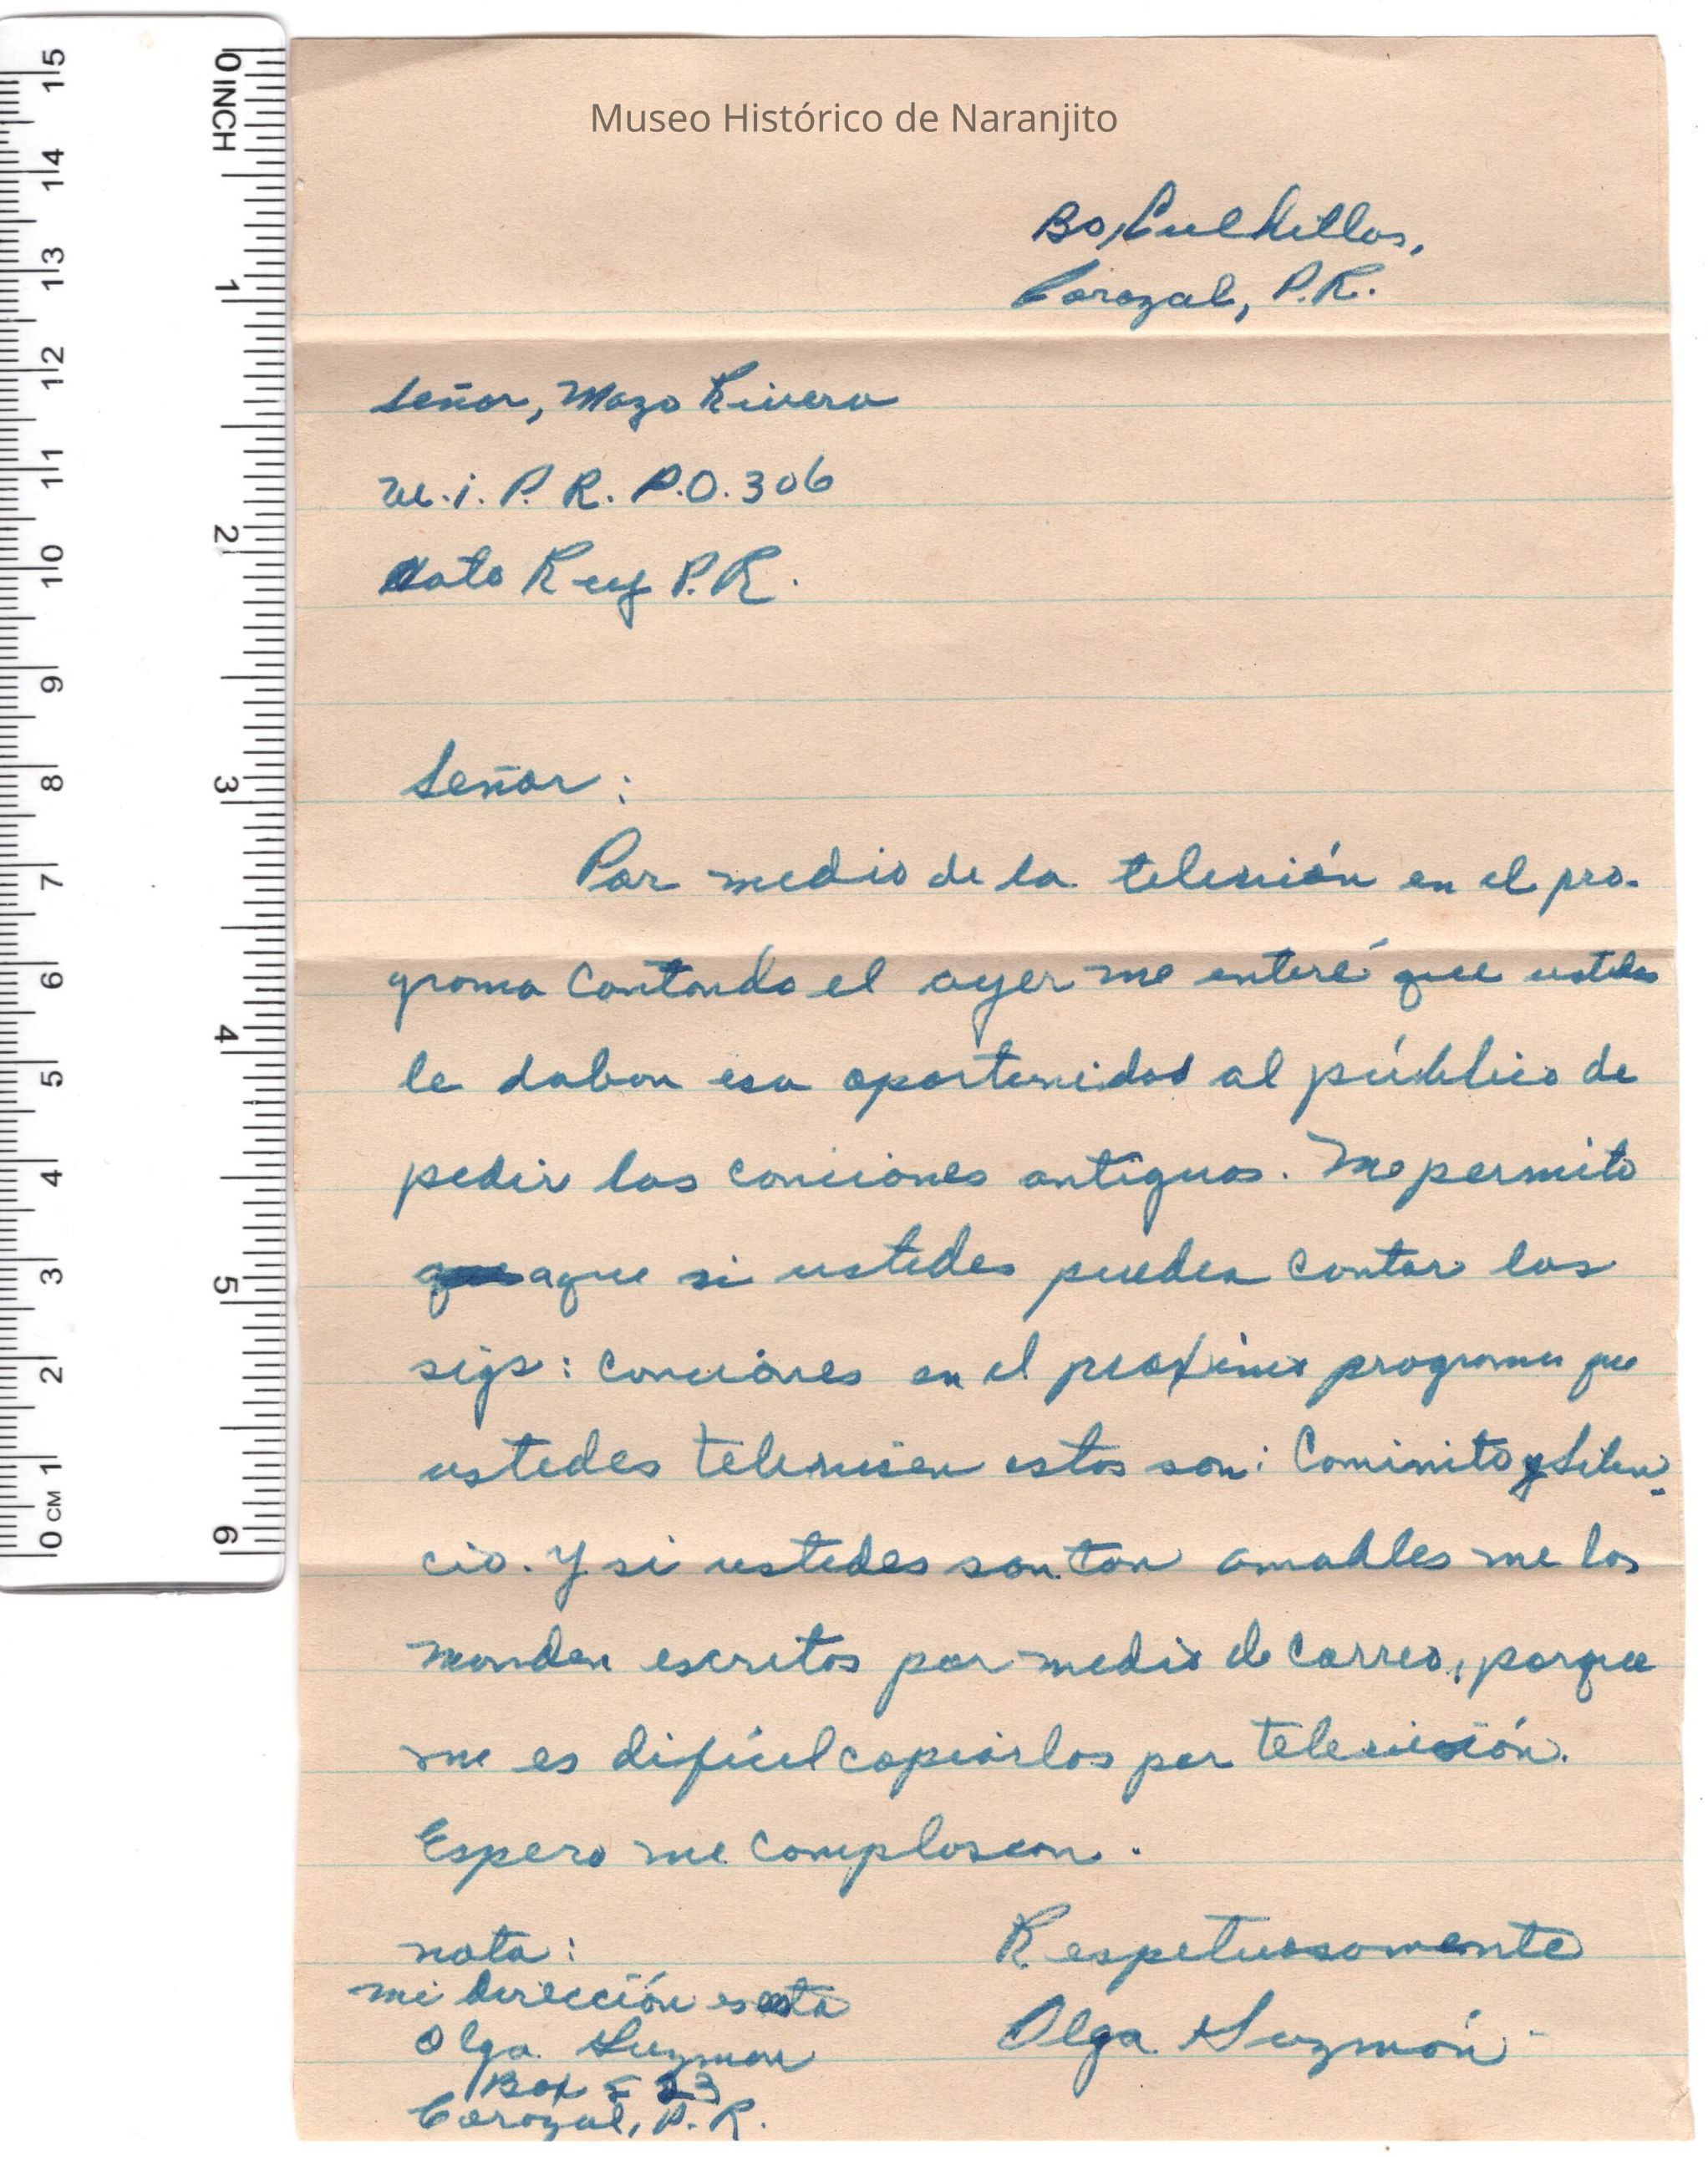 Museo Histórico de Naranjito
Bo, Cuchillas,
Corozal, P.R.
Señor, Mazo Rivera
W.i.P.R. P.O. 306
Hato Rey P.R.
Señor:
Por medio de la televisión en el pro-
grama Cantando el ayer me enteré que ustedes
le daban esa oportunidad al público de
pedir las canciones antiguas. Me permito
aque si ustedes pueden cantar las
sigs: canciones en el proximo programa que
ustedes televisen estas son: Caminito y Silen-
cio. Y si ustedes son tan amables me las
manden escritas por medio de correo, porque
me es difícil copiarlas por televisión.
Espero me complascan.
Respetuosamente
Olga Guzmán
nota:
mi dirección es esta
Olga Guzman
Box 23
Corozal, P.R.
0 INCH 1 2 3 4 5 6
0 CM 1 2 3 4 5 6 7 8 9 10 11 12 13 14 15